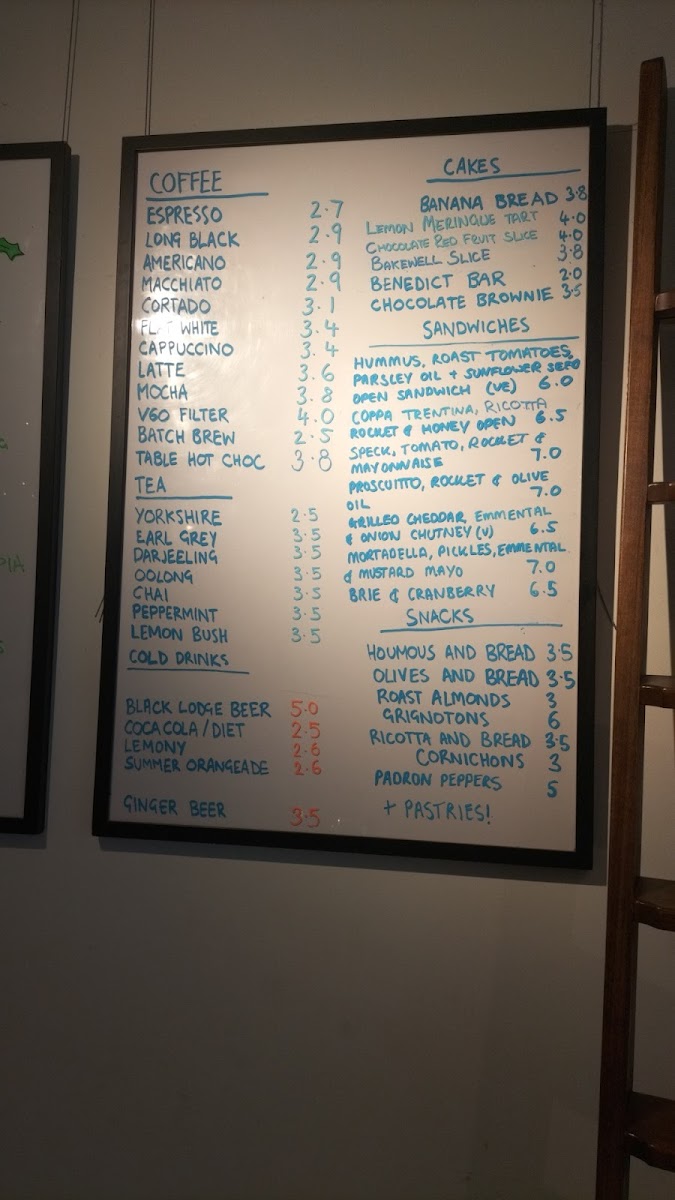 COFFEE
ESPRESSO 2.7
LONG BLACK 2.9
AMERICANO 2.9
MACCHIATO 2.9
CORTADO 3.1
FLAT WHITE 3.4
CAPPUCCINO 3.4
LATTE 3.6
MOCHA 3.8
V60 FILTER 4.0
BATCH BREW 2.5
TABLE HOT CHOC 3.8
TEA
YORKSHIRE 2.5
EARL GREY 3.5
DARJEELING 3.5
OOLONG 3.5
CHAI 3.5
PEPPERMINT 3.5
LEMON BUSH 3.5
COLD DRINKS
BLACK LODGE BEER 5.0
COCA COLA / DIET 2.5
LEMONY 2.6
SUMMER ORANGEADE 2.6
GINGER BEER 3.5
CAKES
BANANA BREAD 3.8
LEMON MERINGUE TART 4.0
CHOCOLATE RED FRUIT SLICE 4.0
BAKEWELL SLICE 3.8
BENEDICT BAR 2.0
CHOCOLATE BROWNIE 3.5
SANDWICHES
HUMMUS, ROAST TOMATOES,
PARSLEY OIL + SUNFLOWER SEED
OPEN SANDWICH (VE) 6.0
COPPA TRENTINA, RICOTTA
ROCKET & HONEY OPEN 6.5
SPECK, TOMATO, ROCKET &
MAYONNAISE 7.0
PROSCUITTO, ROCKET & OLIVE
OIL 7.0
GRILLED CHEDDAR, EMMENTAL
& ONION CHUTNEY (V) 6.5
MORTADELLA, PICKLES, EMMENTAL
& MUSTARD MAYO 7.0
BRIE & CRANBERRY 6.5
SNACKS
HOUMOUS AND BREAD 3.5
OLIVES AND BREAD 3.5
ROAST ALMONDS 3
GRIGNOTONS 6
RICOTTA AND BREAD 3.5
CORNICHONS 3
PADRON PEPPERS 5
+ PASTRIES!